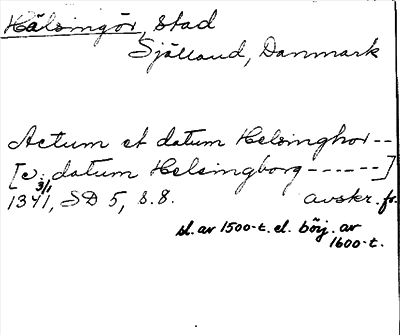 Hälsingör, stad
Själland, Danmark
Actum et datum Helsinghor --
[v: datum Helsingborg ------]
1341 3/1, SD 5, s. 8. avskr. fr.
sl. av 1500-t. el. börj. av
1600-t.